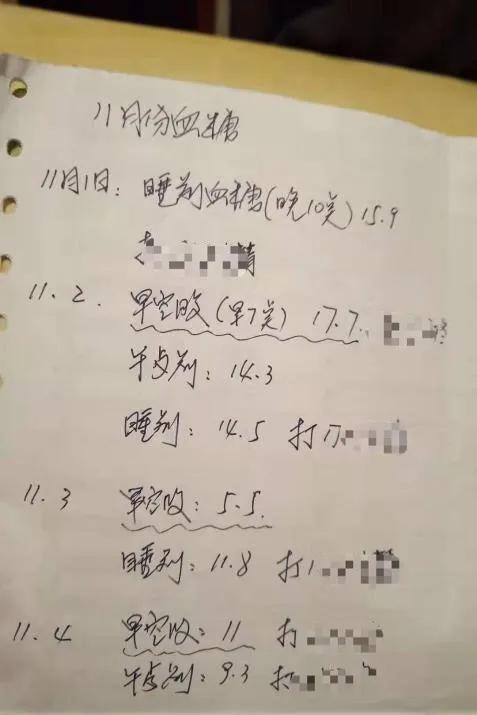 11月份血糖
11月1日: 睡前血糖(晚10点) 15.9
11.2. 早空腹(早7点) 17.7.
午占前: 14.3
睡前: 14.5 打17
11.3 早空腹: 5.5.
睡前: 11.8 打1
11.4 早空腹: 11 打
午占前: 9.3 打